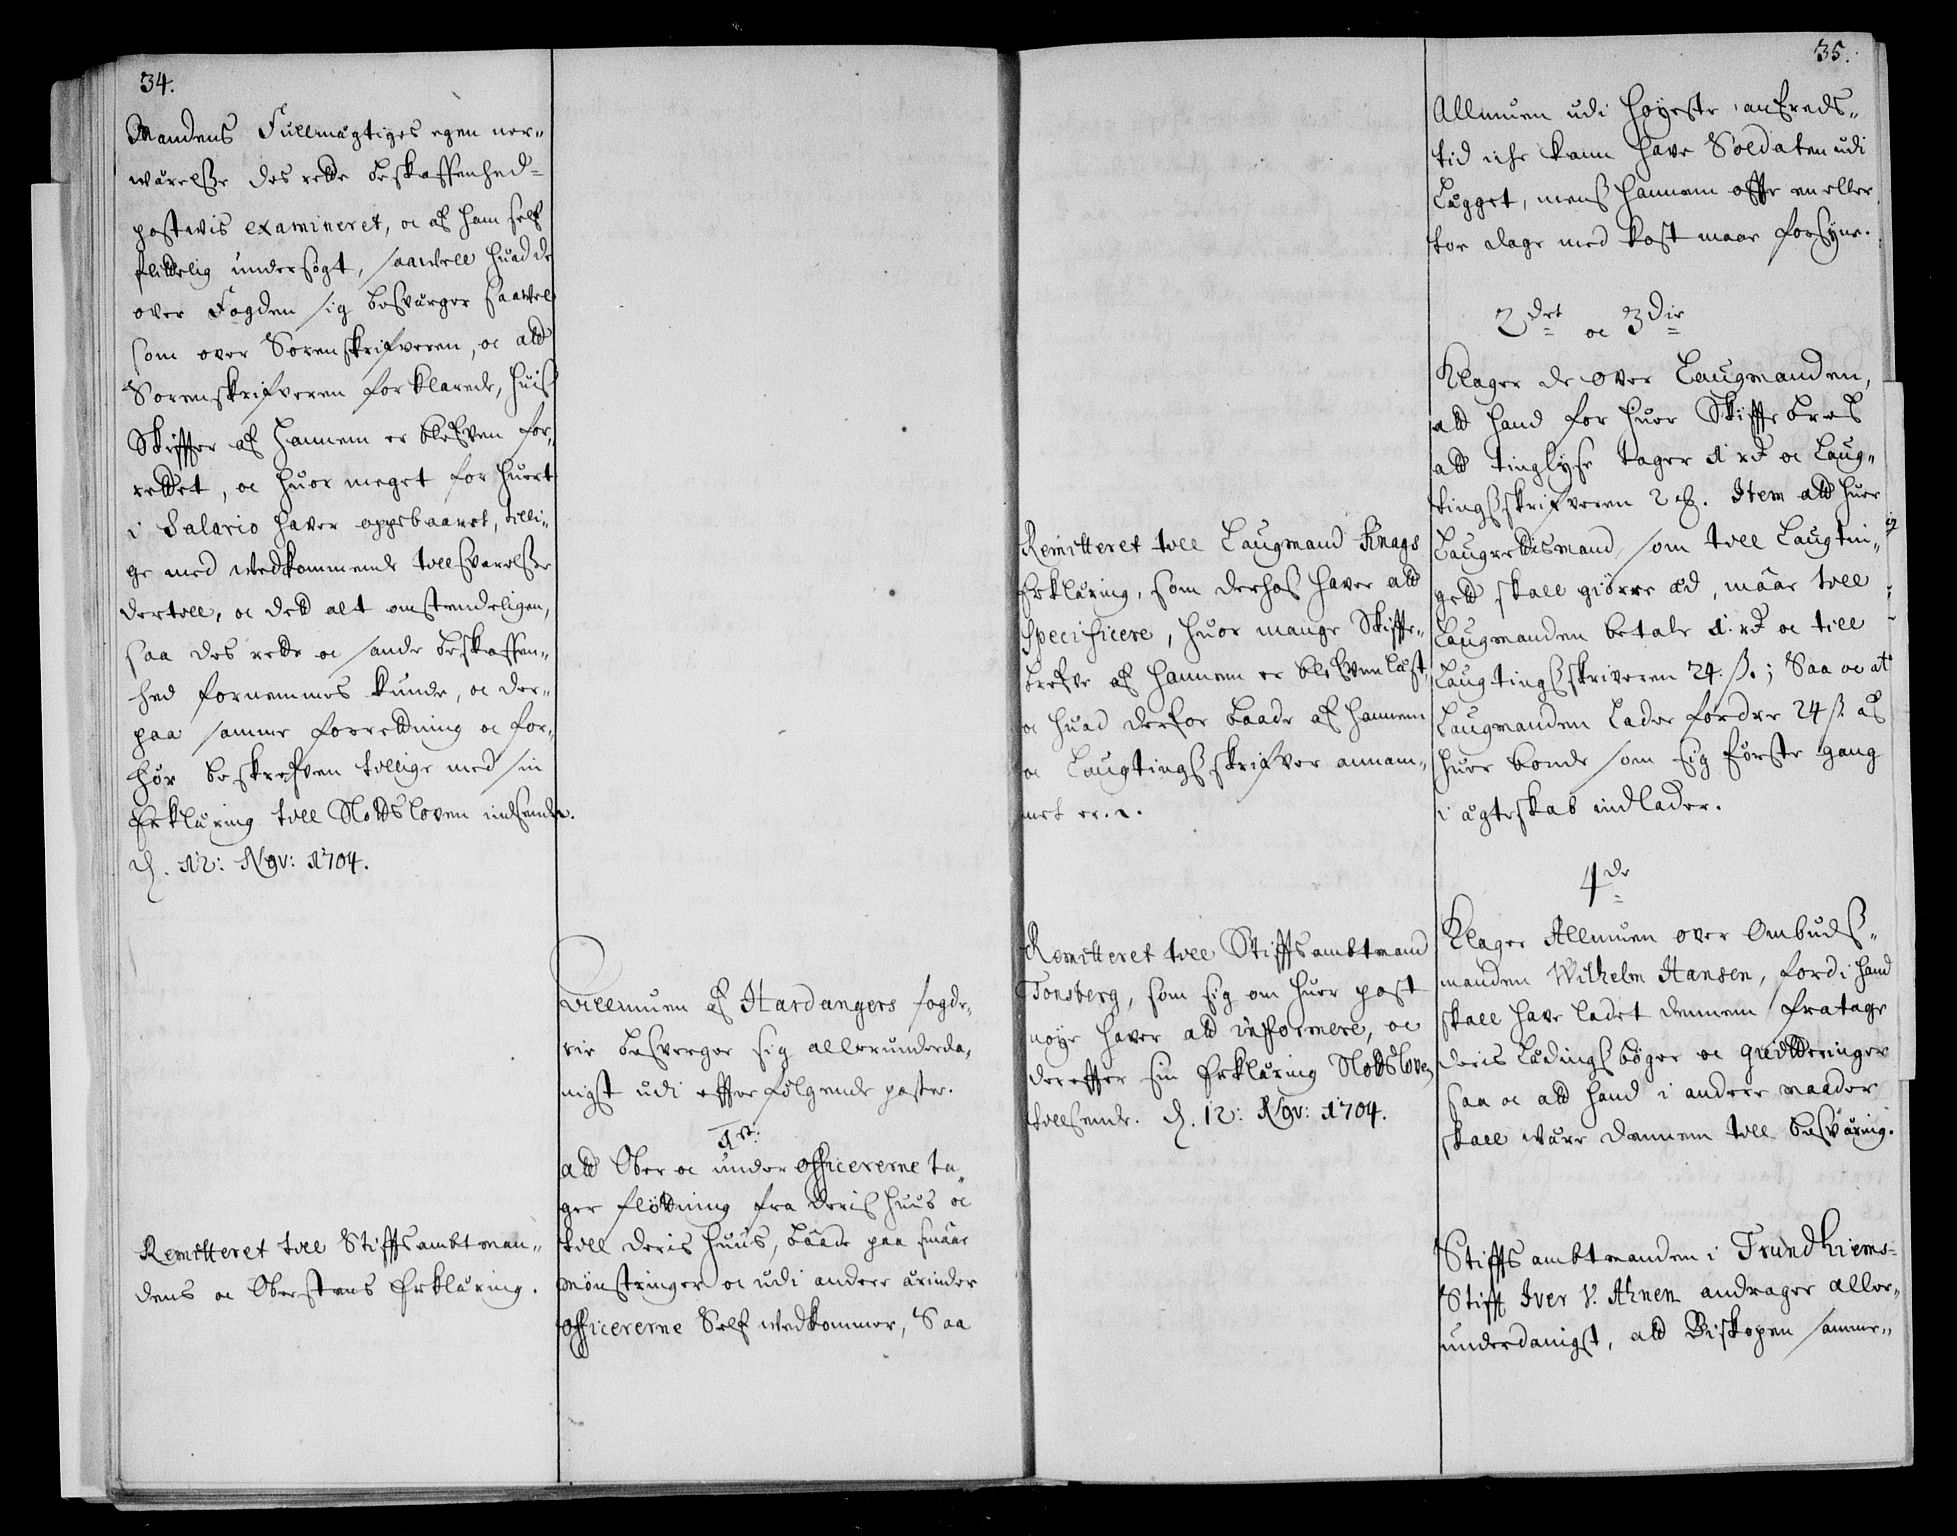 34.
Mandens Fullmægtiges egen ner-
wærelsse des rette beskaffenhed
postwis examineret, oc af ham self
flittelig undersøgt, saawell huad de
over Fogden sig besværger saavel
som over Sorenskrifveren, oc att
Sorenskrifveren forklarede, huis
Skiffter af hannem er blefven for-
rettet, oc huor meget for huert
i Salario haver oppebaaret, tilli-
ge med wedkommende till svarelsse
dertill, oc dett alt omstendeligen,
saa des rette oc sande beskaffen-
hed fornemmes kunde, oc der-
paa samme forretning oc for-
hør beskrefven tillige med sin
Erklæring till Slottsloven indsende.
d. 12: Nov: 1704.
Remitteret till Stifftsambtman-
dens oc Oberstens Erklæring.
Allmuen af Hardangers fogde-
rie besverger sig allerunderda-
nigst udi efterfølgende poster.
1st:
att Ober oc under officererne ta-
ger fløttning fra deris huus oc
till deris huus, baade paa smaae
mønstringer oc udi andre ærinder
officererne Self wedkommer, Saa
Remitteret till Laugmand Knags
Erklæring, som derhos haver att
specificere, huor mange Skiffte-
brefve af hannem er blefven læst,
oc huad derfor baade af hannem
oc Laugtings skrifver annam-
met er.
Remitteret till Stifftsambtmand
Tonsberg, som sig om huer post
nøye haver att informere, oc
derefter sin Erklæring Slottsloven
tillsende. d. 12: Nov: 1704.
35.
Allmuen udi høyeste anfreds-
tid iche kann have Soldaten udi
Lægget, mens hannem offte en eller
toe dage med kost maae forsyne.
2det oc 3die
Klager de over Laugmanden,
att hand for huer Skiffte bref
att tinglyse tager 1 rd oc Laug-
tingsskrifveren 2 . Item att huer
Laugrettismand, som till Laugtin-
gett skall giørre æd, maae till
Laugmanden betale 1. rd oc till
Laugtingsskriveren 24. s.; Saa oc at
Laugmanden Lader fordre 24 s. af
huer bonde som sig første gang
i ægteskab indlader.
4de
Klager Allmuen over Ombuds-
manden Wilhelm Hansen, fordi hand
skall have ladet dennem fratage
deris Lædings bøger oc quitteringer
saa oc att hand i andre maader
skall være dennem till besværing.
Stifftsambtmanden i Trundhiems-
Stifft Iver V. Ahnen andrager aller-
underdanigst, att Biskopen samme-